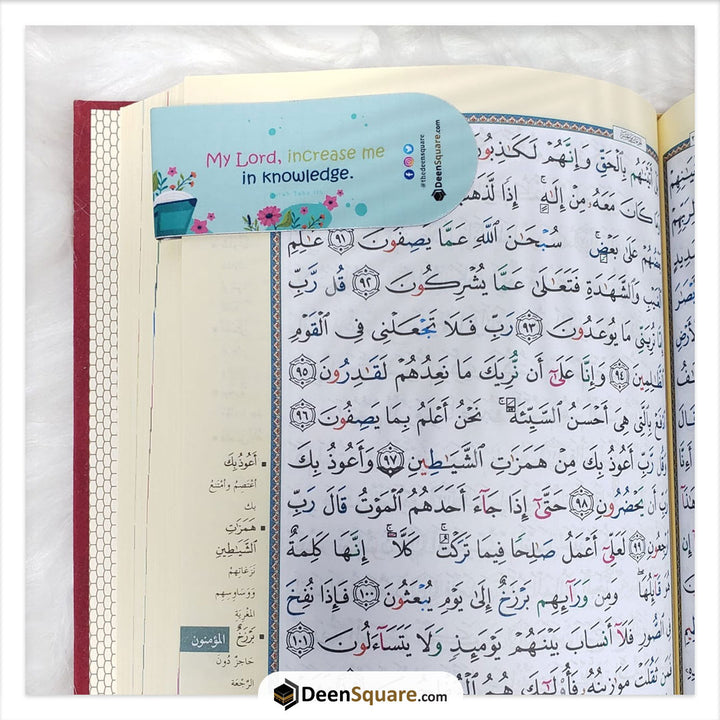 My Lord, increase me
in knowledge.
@thedeensquare
DeenSquare.com
بِالْحَقِّ وَإِنَّهُمْ لَكَٰذِبُونَ
كَانَ مَعَهُۥ مِنْ إِلَٰهٍ ۚ إِذًا لَّذَهَبَ
عَلَىٰ بَعْضٍ ۚ سُبْحَٰنَ ٱللَّهِ عَمَّا يَصِفُونَ ٩١ عَٰلِمِ
ٱلْغَيْبِ وَٱلشَّهَٰدَةِ فَتَعَٰلَىٰ عَمَّا يُشْرِكُونَ ٩٢ قُل رَّبِّ
تُرِيَنِّي مَا يُوعَدُونَ ٩٣ رَبِّ فَلَا تَجْعَلْنِي فِي ٱلْقَوْمِ
ٱلظَّٰلِمِينَ ٩٤ وَإِنَّا عَلَىٰٓ أَن نُّرِيَكَ مَا نَعِدُهُمْ لَقَٰدِرُونَ ٩٥
ٱدْفَعْ بِٱلَّتِي هِيَ أَحْسَنُ ٱلسَّيِّئَةَ ۚ نَحْنُ أَعْلَمُ بِمَا يَصِفُونَ ٩٦
وَقُل رَّبِّ أَعُوذُ بِكَ مِنْ هَمَزَٰتِ ٱلشَّيَٰطِينِ ٩٧ وَأَعُوذُ بِكَ
رَبِّ أَن يَحْضُرُونِ ٩٨ حَتَّىٰٓ إِذَا جَآءَ أَحَدَهُمُ ٱلْمَوْتُ قَالَ رَبِّ
ٱرْجِعُونِ ٩٩ لَعَلِّيٓ أَعْمَلُ صَٰلِحًا فِيمَا تَرَكْتُ ۚ كَلَّآ ۚ إِنَّهَا كَلِمَةٌ
هُوَ قَآئِلُهَا ۖ وَمِن وَرَآئِهِم بَرْزَخٌ إِلَىٰ يَوْمِ يُبْعَثُونَ ١٠٠ فَإِذَا نُفِخَ
فِي ٱلصُّورِ فَلَآ أَنسَابَ بَيْنَهُمْ يَوْمَئِذٍ وَلَا يَتَسَآءَلُونَ ١٠١
ثَقُلَتْ مَوَٰزِينُهُۥ فَأُو۟لَٰٓئِكَ هُمُ
أَعُوذُ بِكَ
أعتصم وأمتنع
بك
هَمَزَٰتِ
ٱلشَّيَٰطِينِ
نزغاتهم
ووساوسهم
المغرية
بَرْزَخٌ
المؤمنون
حاجز دون
الرجعة
DeenSquare.com